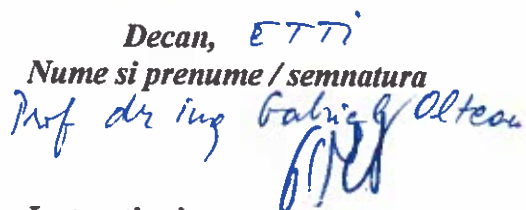 Decan, ETTI
Nume si prenume / semnatura
Prof dr ing Gabriel Oltean